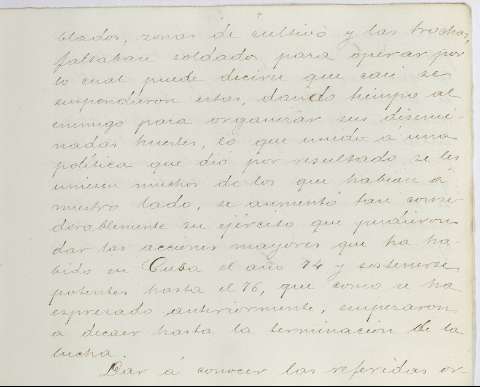 blados, zonas de cultivo y las trochas,
faltaban soldados para operar por
lo cual puede decirse que casi se
suspendieron estas, dando tiempo al
enemigo para organizar sus disemi-
nadas huestes, lo que unido á una
política que dió por resultado se les
unieran muchos de los que habian á
nuestro lado, se aumentó tan consi-
derablemente su ejército que pudieron
dar las acciones mayores que ha ha-
bido en Cuba el año 74 y sostenerse
potentes hasta el 76, que como se ha
expresado anteriormente, empezaron
a decaer hasta la terminación de la
lucha.
Dar á conocer las referidas or-